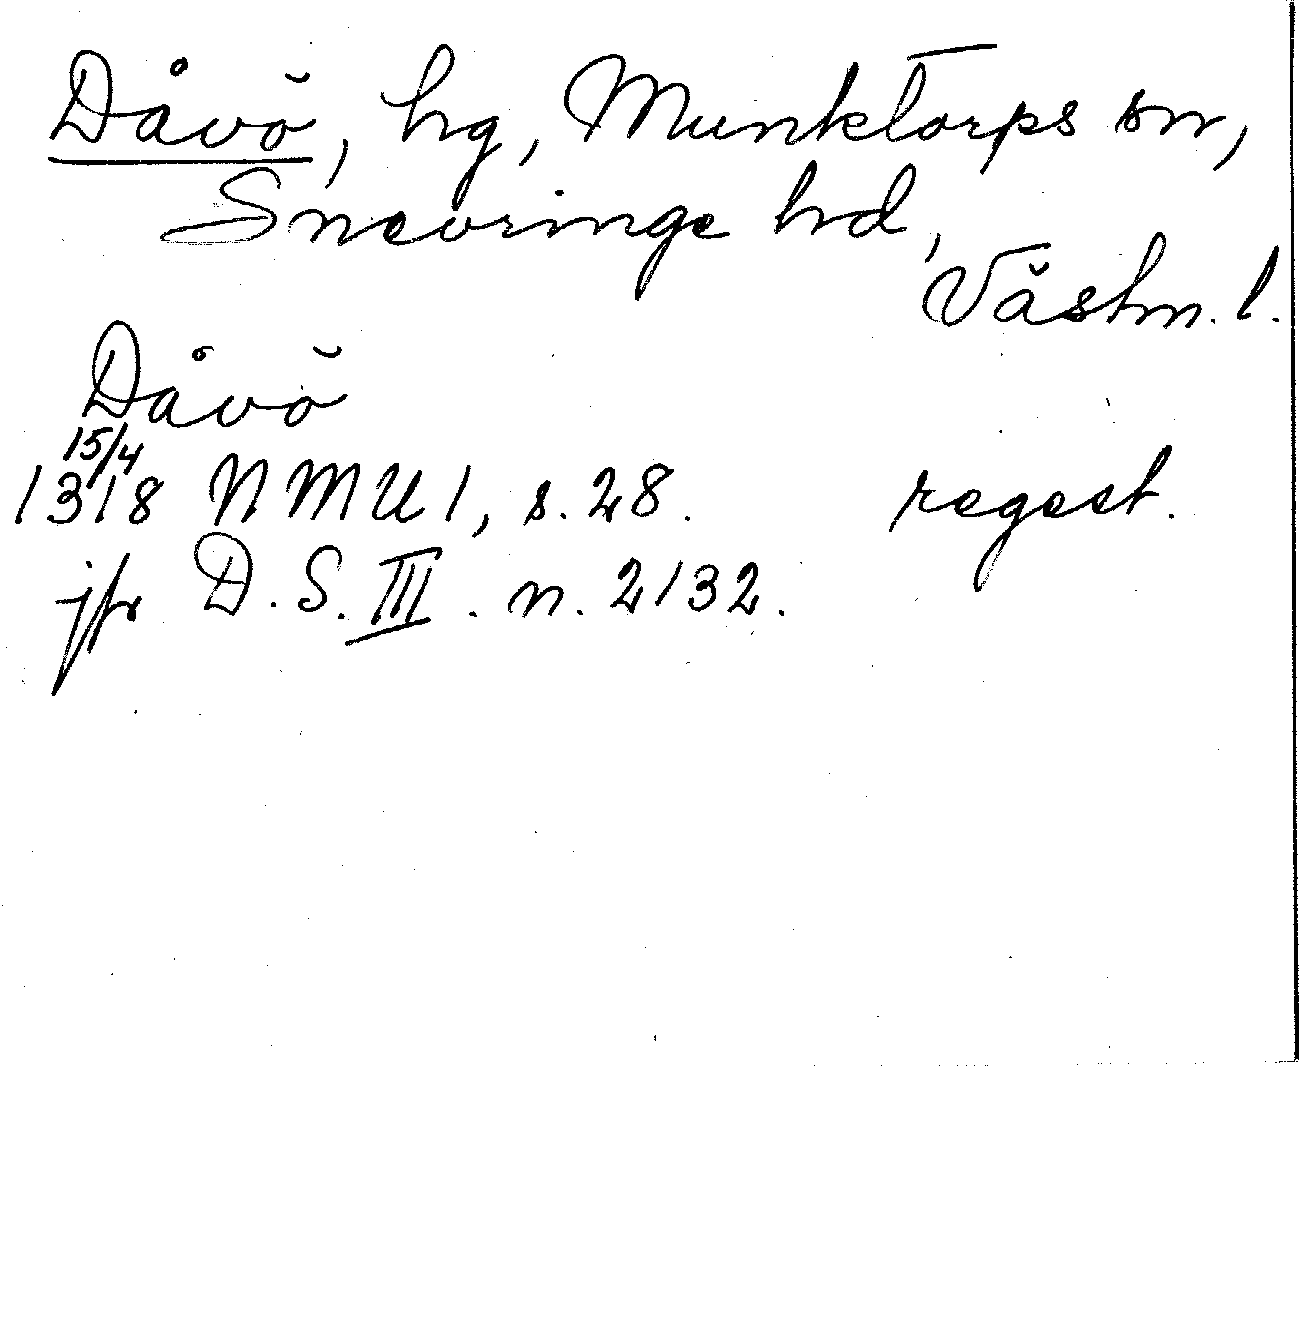 Dåvö, hg, Munktorps sn,
Snevringe hd,
Västm. l.
Dåvö
15/4
1318 NMU 1, s. 28. regest.
jfr D. S. III. n. 2132.